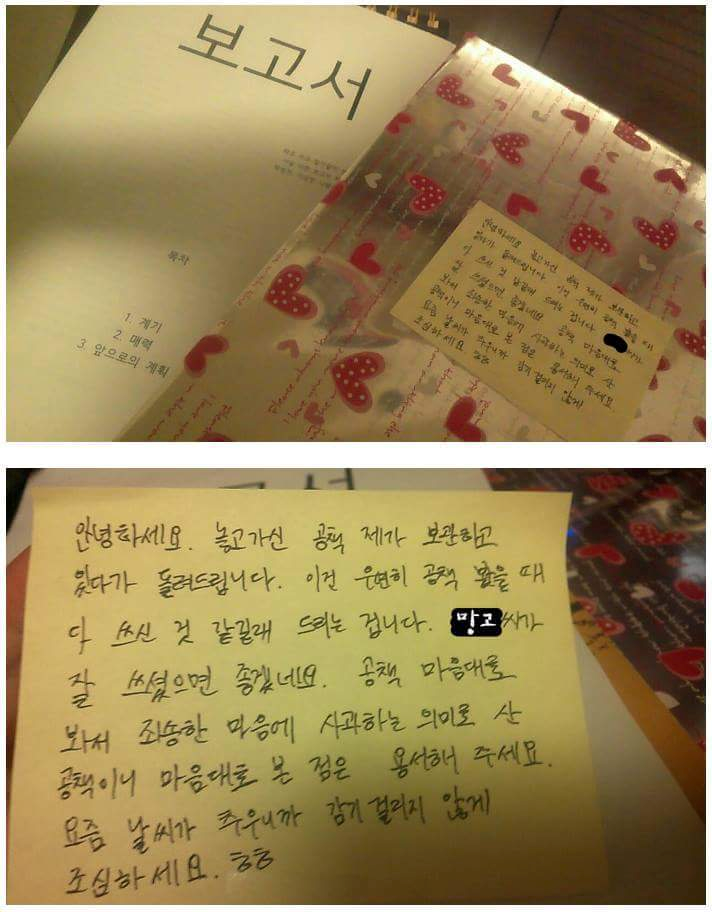 보고서
목차
1. 계기
2. 매력
3. 앞으로의 계획
안녕하세요. 놓고가신 공책 제가 보관하고
있다가 돌려드립니다. 이건 우연히 공책 봤을 때
다 쓰신 것 같길래 드리는 겁니다. 망고씨가
잘 쓰셨으면 좋겠네요. 공책 마음대로
봐서 죄송한 마음에 사과하는 의미로 산
공책이니 마음대로 본 점은 용서해 주세요.
요즘 날씨가 추우니까 감기 걸리지 않게
조심하세요. ㅎㅎ